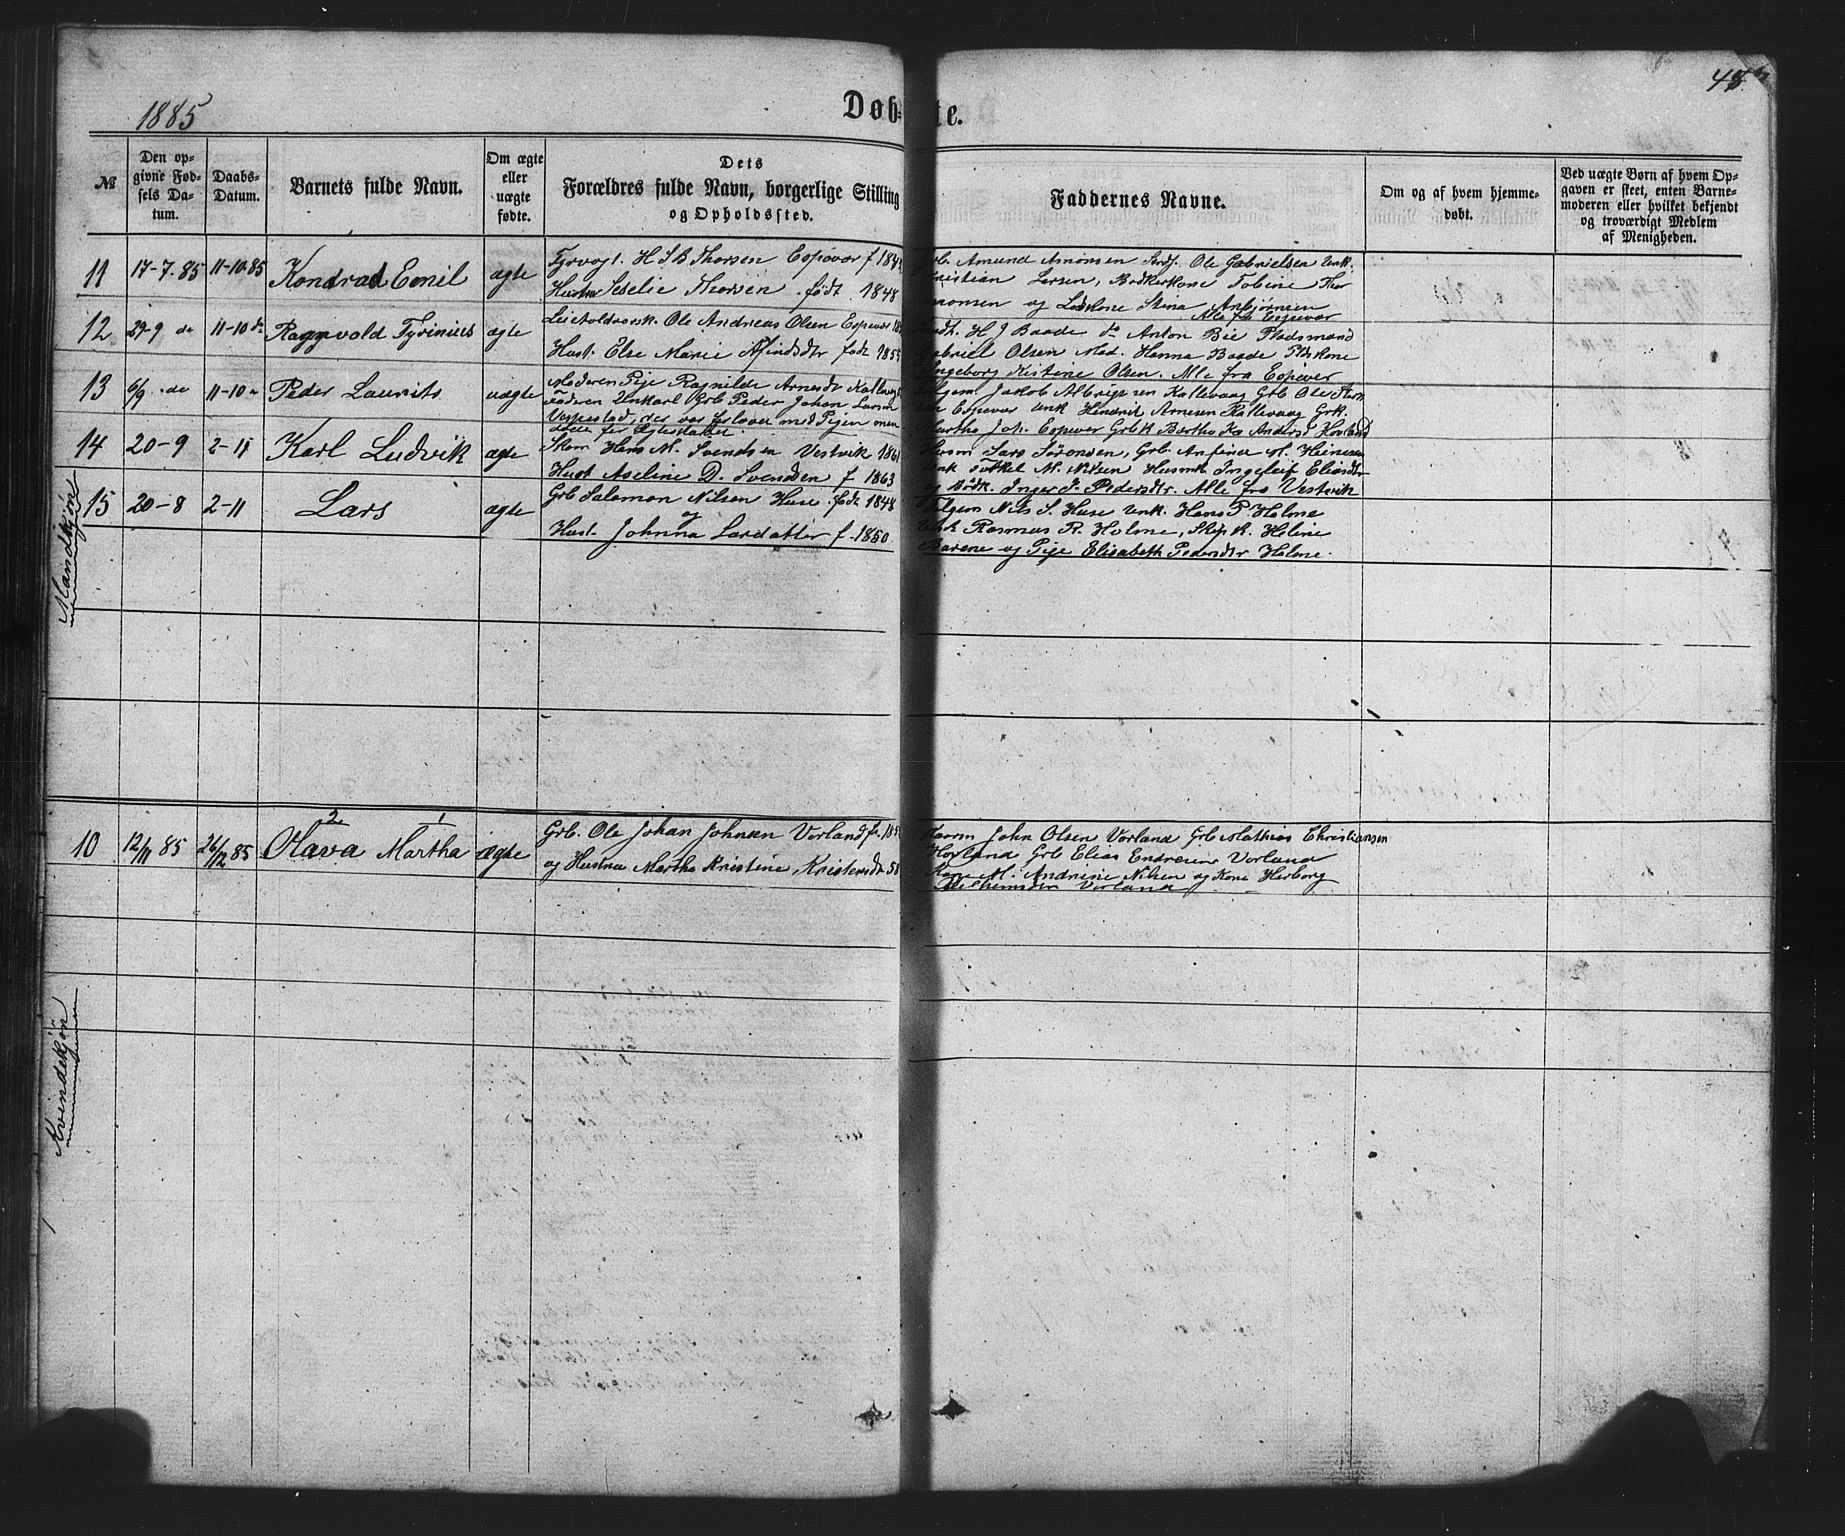 1885
Døb-
te.
48
№
Den op-
givne Fød-
sels Da-
tum.
Daabs-
Datum.
Barnets fulde Navn.
Om ægte
eller
uægte
fødte.
Dets
Forældres fulde Navn, borgerlige Stilling
og Opholdssted.
Faddernes Navne.
Om og af hvem hjemme-
døbt.
Ved uægte Børn af hvem Op-
gaven er skeet, enten Barne-
moderen eller hvilket bekjendt
og troværdigt Medlem
af Menigheden.
Mandkjøn
11
17-7-85
11-10-85
Kondrad Eemil
ægte
Fyrvogt. H S B Thorsen Espevær f
Hustru Seselie Thorsen. født 1848
Amund Amonsen Ole Gabrielsen Unk.
Kristian Larsen, Bødkerkone Tobine Thor
monsen og Lodskone Stina Anbjørnsen
Alle fra Espevær
12
29-9 do
11-10 do
Ragnvold Tyrinius
ægte
Ole Andreas Olsen Espevær
Hust. Else Marie født 1855
H J Baade do Anton Bie Pladsmand
Gabriel Olsen Mad. Hanna Baade
Ingeborg Kistene Olsen. Alle fra Espevær
13
6/9 do
11-10
Peder Laurits
uægte
Moderen Pige Ragnilde Arnesdt Kallevaag
Faderen Unkarl Grb Peder Johan Larsen
Vespestad, der var forlovet med Pigen men
døde før Ægteskabet
Jakob Albrigtsen Kallevaag Grb Ole
Espevær Unk Hendrik Arnesen Kallevaag Grk.
Martha Joh. Espevær Grbk Bertha Ka Andersd Hovland
14
20-9
2-11
Karl Ludvik
ægte
Skom Hans M. Svendsen Vestvik 1861
Hust Aseline D. Svendsen f 1863
Husm Lars Sørensen, Grb. Anfinn M. Heinesen
Unk Torkel M. Nilsen Husmk Ingeleif Eliasdtr
og Bødk. Inger J. Pedersdtr. Alle fra Vestvik
15
20-8
2-11
Lars
ægte
Grb Salamon Nilsen Huse født 1848
og
Hust. Johnna Larsdatter f. 1850
Følgem Nils S. Huse Unk. Hans P. Holme
Unk Rasmus R. Holme, Skipk. Heline
Barene og Pige Elisabeth Pedersdtr Holme.
Kvindekjøn
10
12/11 85
26/12 85
2 1
Olava Martha
ægte
Grb. Ole Johan Johnsen Vorland
og Hustru Martha Kristine Kristensdt 58
John Olsen Vorland Grb Mathias Christiansen
Hovland Grb Elias Endresen Vorland
Kone M. Andrine Nilsen og Kone Herborg
Vorland